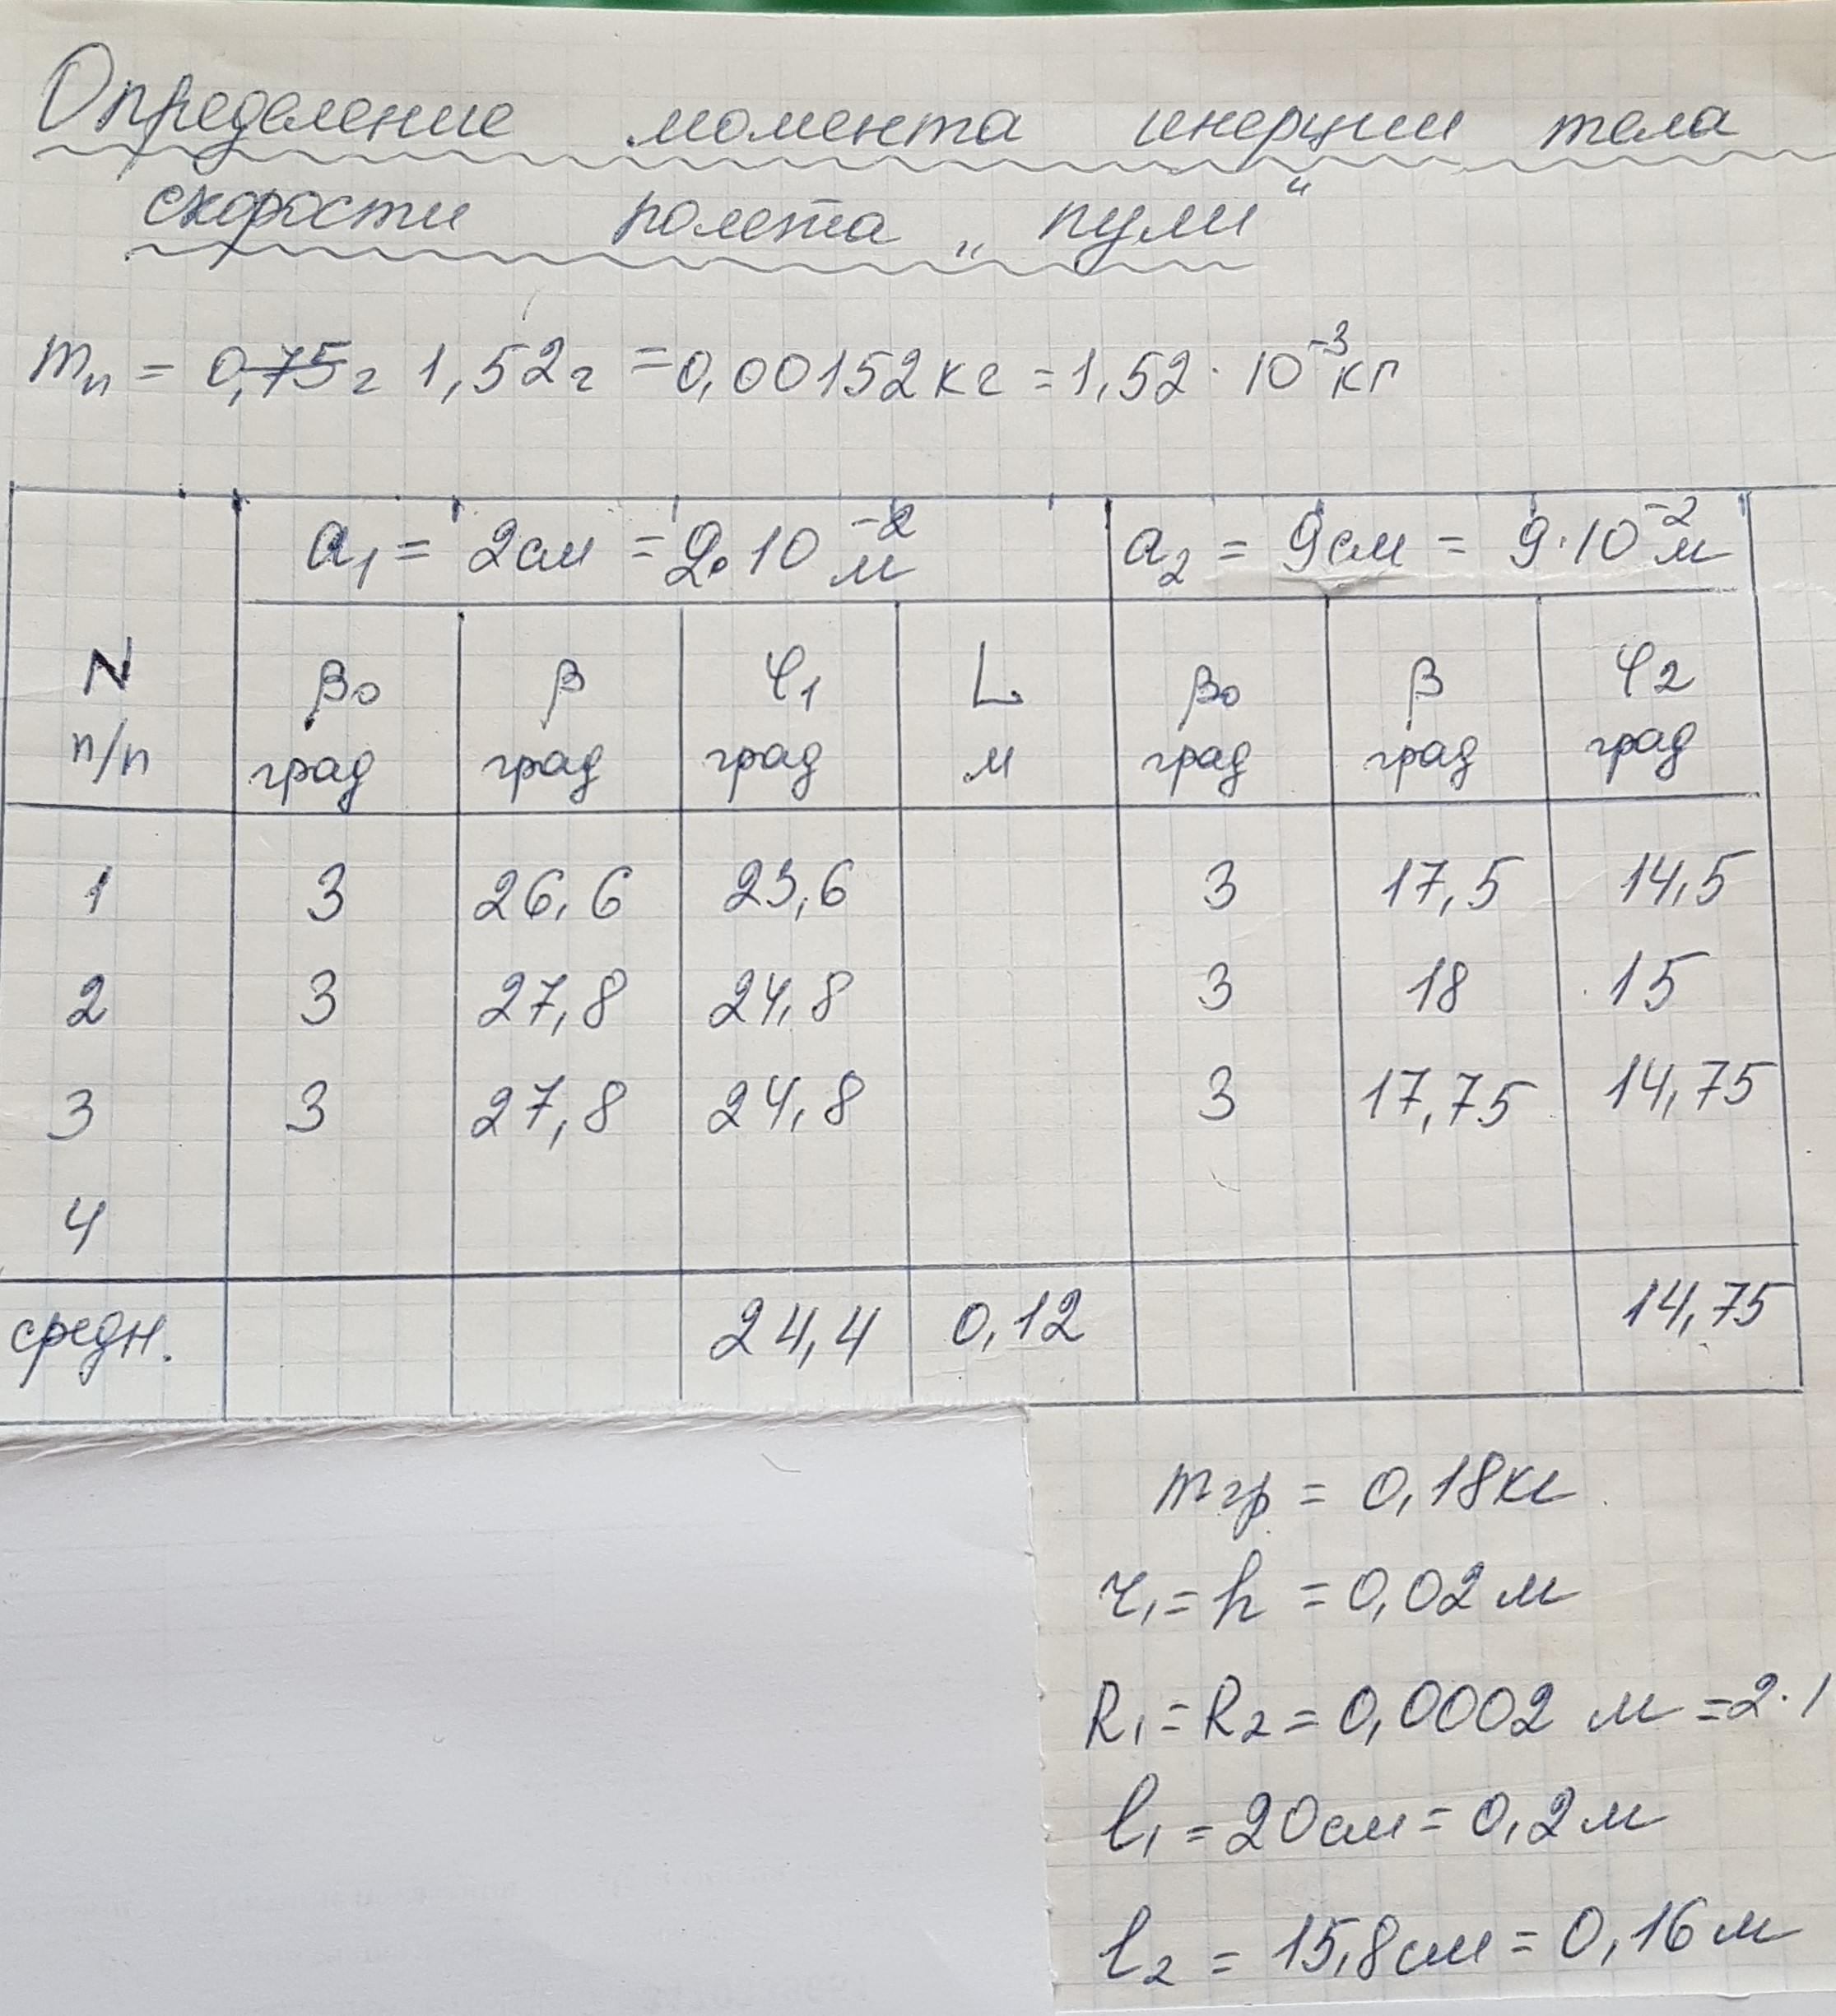 Определение момента инерции тела
скорости полета „пули“
mп = 0,75г 1,52г = 0,00152кг = 1,52 · 10⁻³кг
a₁ = 2см = 2·10⁻²м a₂ = 9см = 9·10⁻²м
N п/п β₀ град β град φ₁ град L м β₀ град β град φ₂ град
1 3 26,6 23,6 3 17,5 14,5
2 3 27,8 24,8 3 18 15
3 3 27,8 24,8 3 17,75 14,75
4
средн. 24,4 0,12 14,75
mгр = 0,18кг
r₁ = h = 0,02 м
R₁ = R₂ = 0,0002 м = 2·1
l₁ = 20см = 0,2м
l₂ = 15,8см = 0,16м